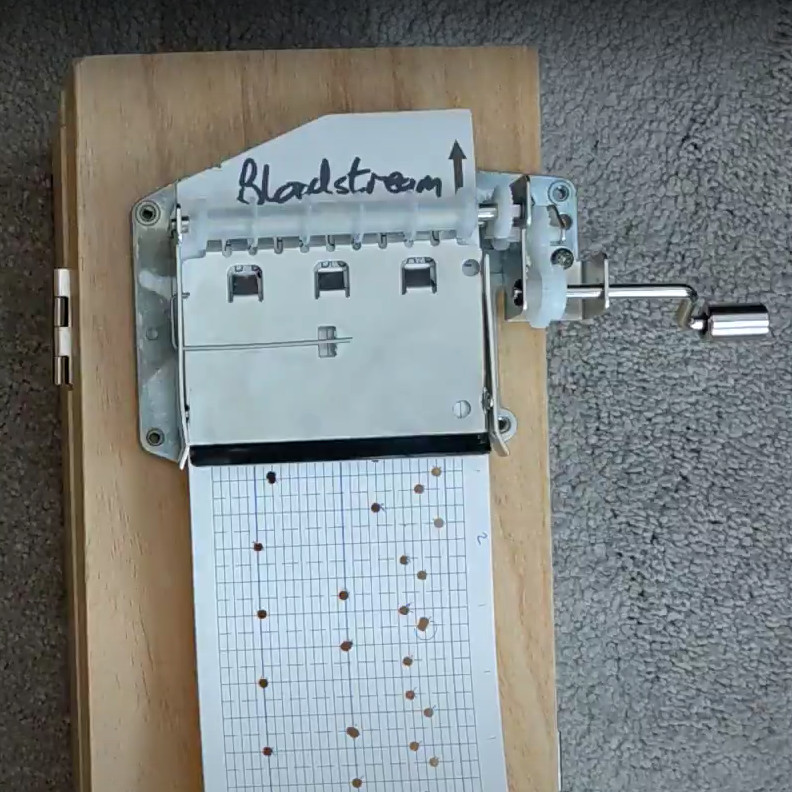 Bloodstream
2